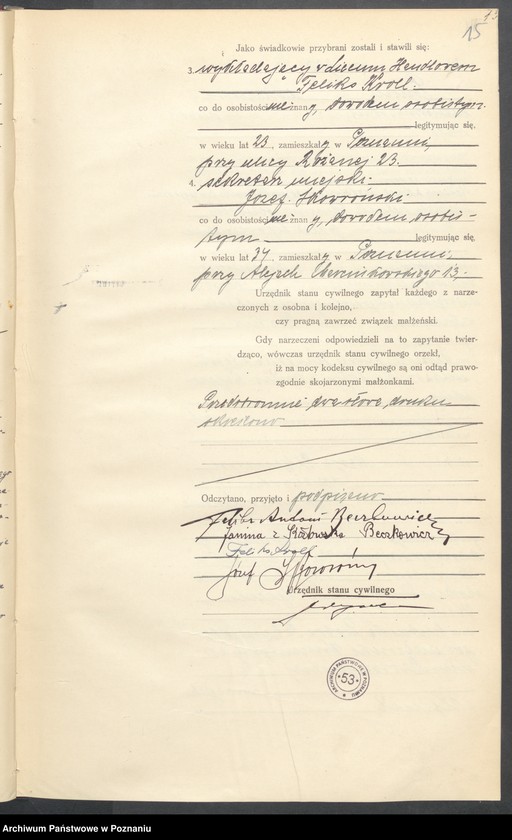 13
15
Jako świadkowie przybrani zostali i stawili się:
3. wykładający w liceum Handlowem
Feliks Kroll.
co do osobistości nieznany, dowodem osobistym
legitymując się,
w wieku lat 23, zamieszkały w Poznaniu,
przy ulicy Różanej 23.
4. sekretarz miejski
Józef Skowroński
co do osobistości nieznany, dowodem osobi-
tym legitymując się
w wieku lat 34, zamieszkały w Poznaniu,
przy Alejach 13,-
Urzędnik stanu cywilnego zapytał każdego z narze-
czonych z osobna i kolejno,
czy pragną zawrzeć związek małżeński.
Gdy narzeczeni odpowiedzieli na to zapytanie twier-
dząco, wówczas urzędnik stanu cywilnego orzekł,
iż na mocy kodeksu cywilnego są oni odtąd prawo-
zgodnie skojarzonymi małżonkami.
Poprzedstronnie dwa słowa druku
skreślono
Odczytano, przyjęto i podpisano
Feliks Antoni Beczkowicz
Janina z Beczkowicz
Feliks Kroll
Józef Skowroński
Urzędnik stanu cywilnego
ARCHIWUM PAŃSTWOWE W POZNANIU
*53*
Archiwum Państwowe w Poznaniu